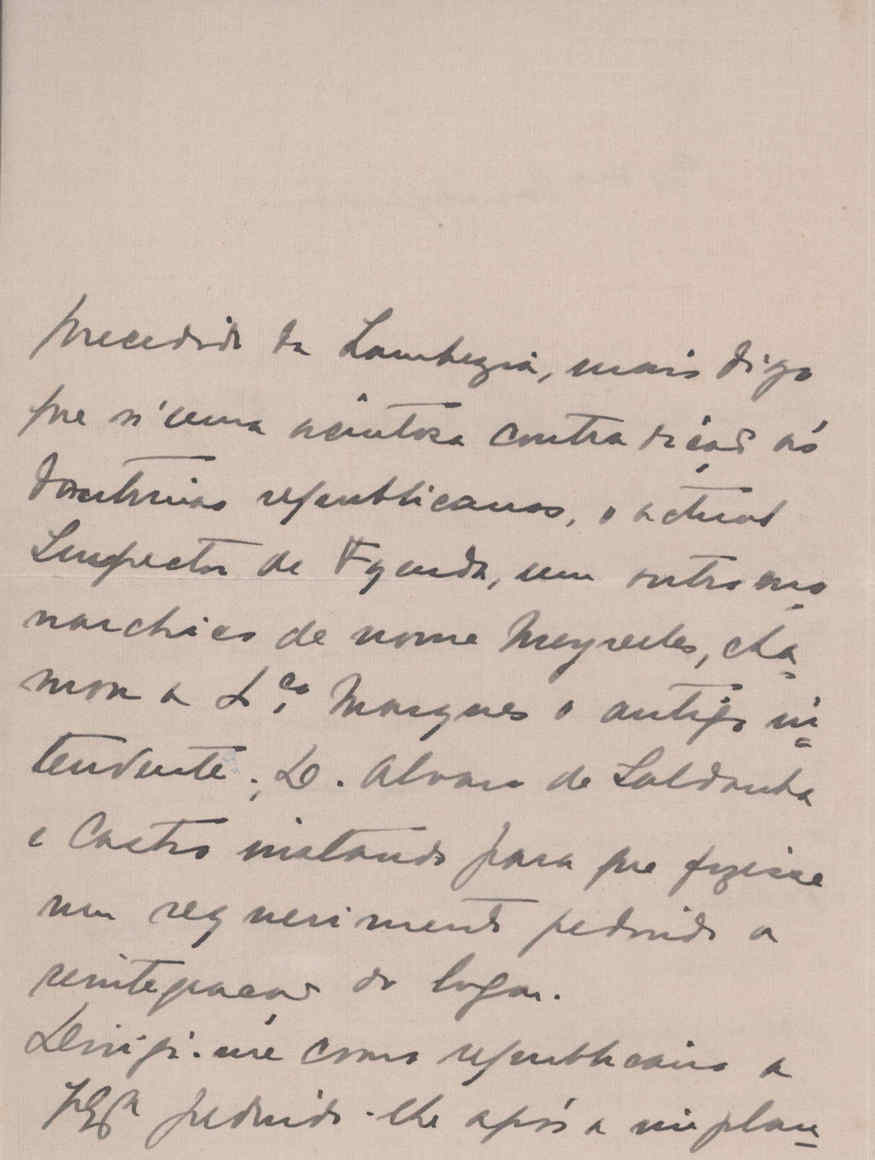 precedido da Zambezia, mais digo
que n'uma acintosa contradição ás
doutrinas republicanas, o actual
Inspector de Fazenda, um outro mo
narchico de nome Meyrelles, cha
mou a L.ço Marques o antigo in
tendente, D. Alvaro de Saldanha
e Castro instando para que fizesse
um requerimento pedindo a
reintegração do logar.
Dirigi-me como republicano a
V. Ex.ª pedindo-lhe após a implan